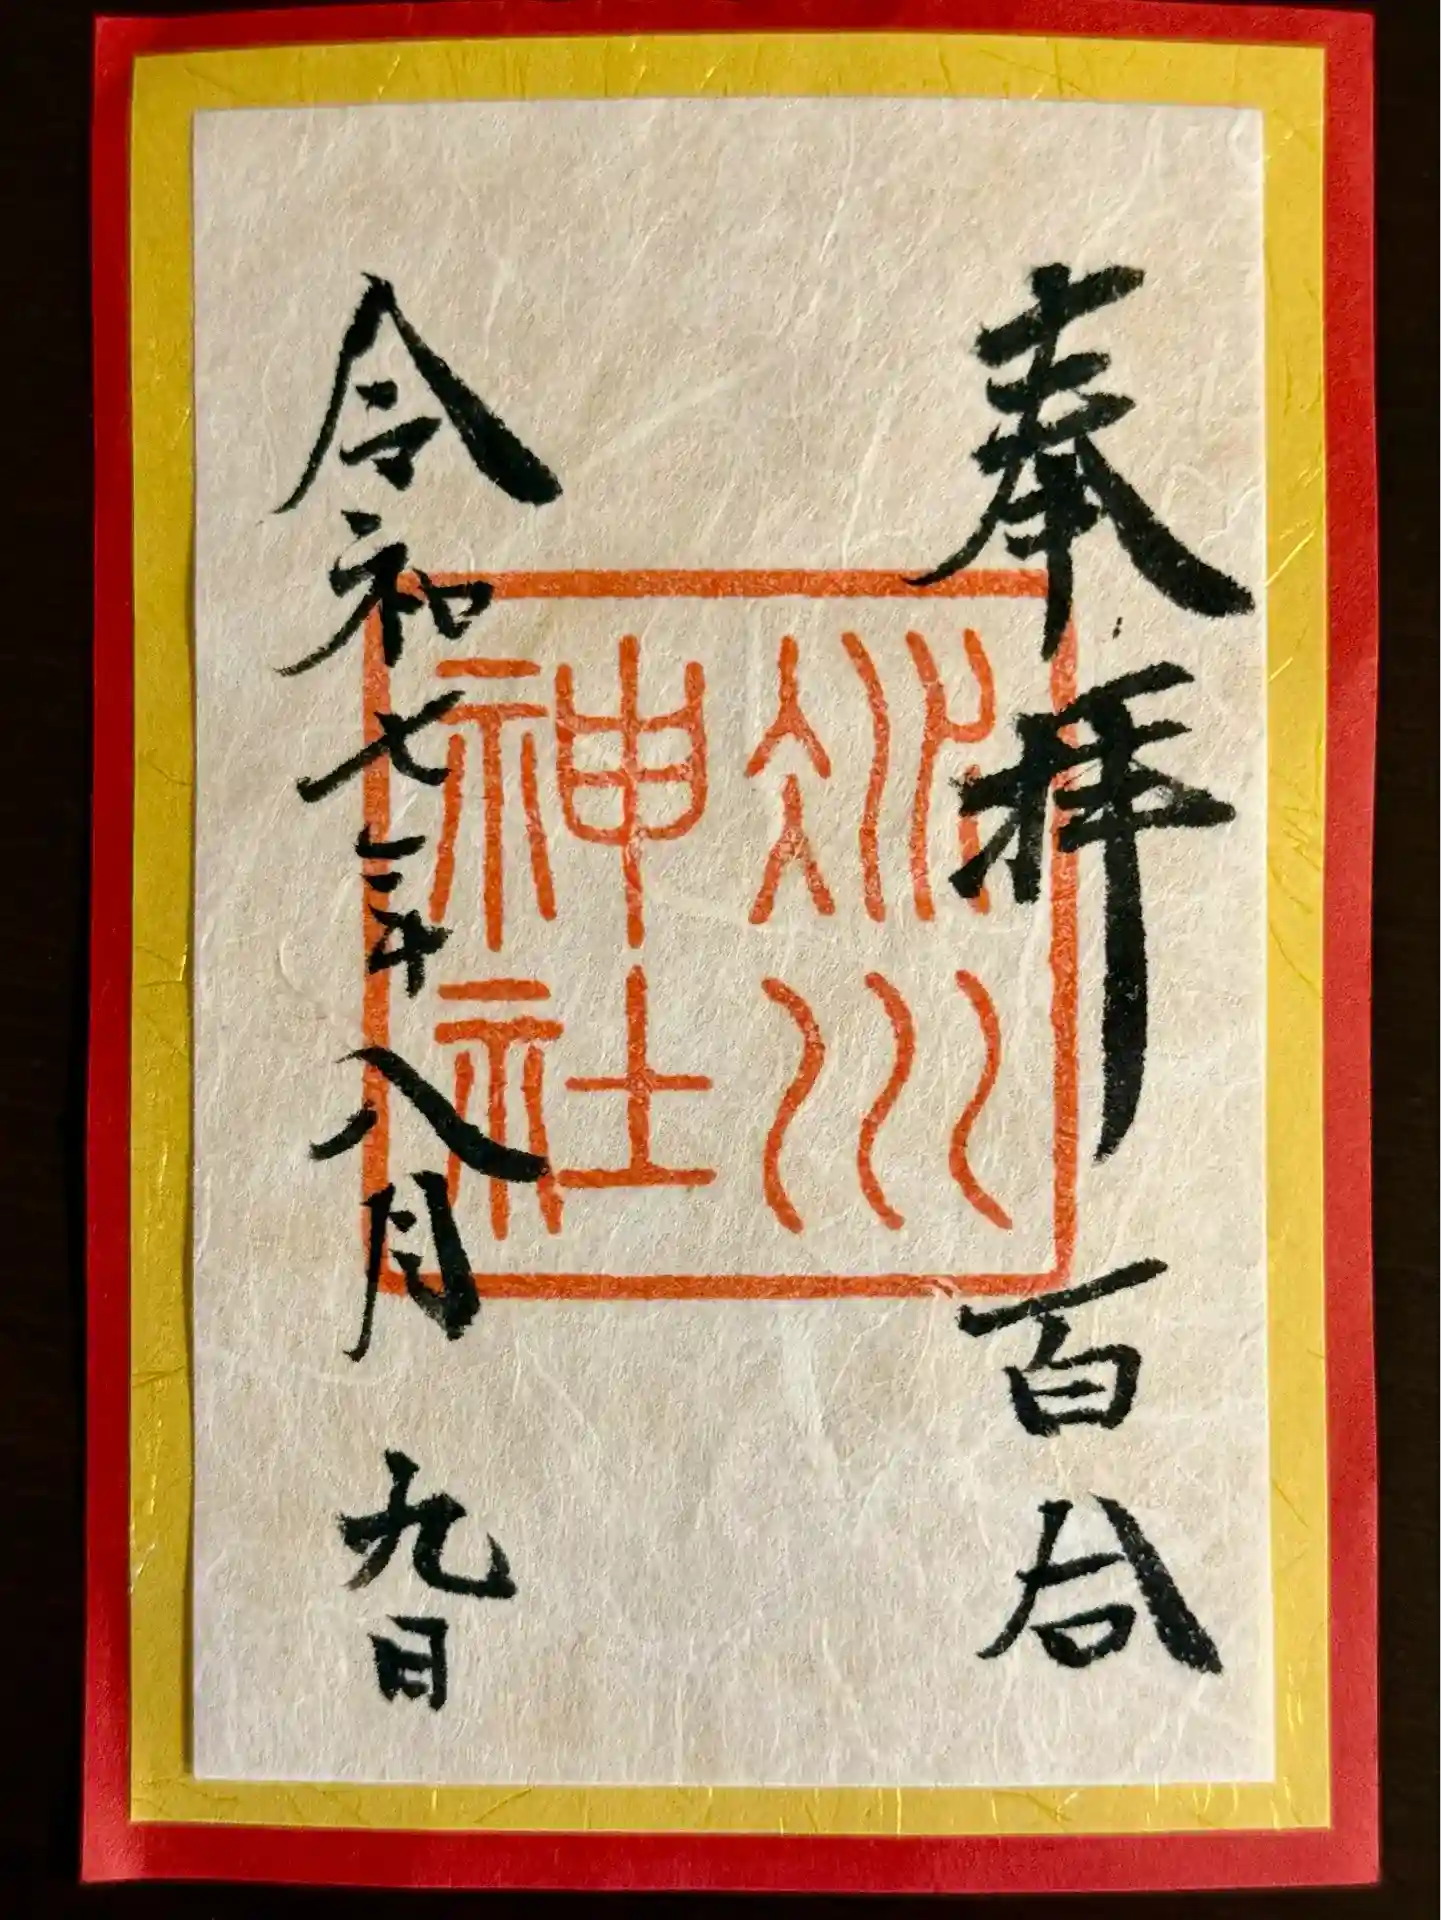 奉拝 百合
氷川
神社
令和七年八月九日